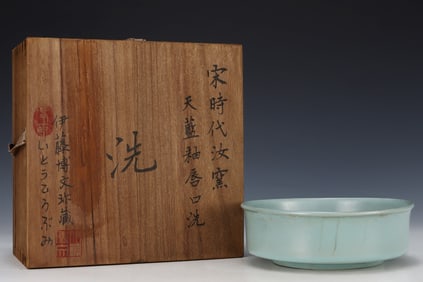 宋時代汝窯
天藍釉唇口洗
洗
伊藤博文珎藏
いとうひろぶみ